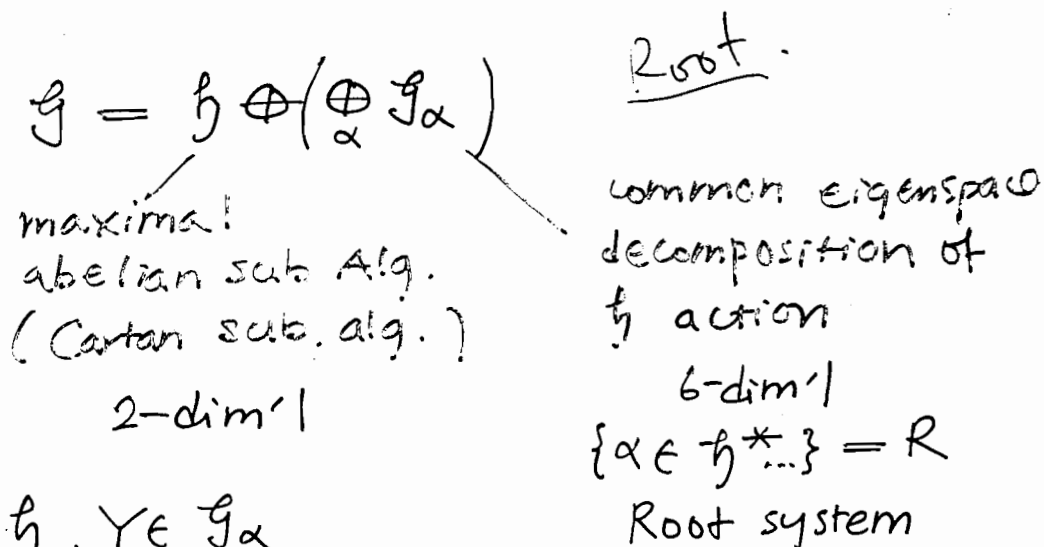 Root.
𝔤 = 𝔥 ⊕ (⊕_α 𝔤_α)
maximal
abelian sub Alg.
(Cartan sub. alg.)
2-dim'l
common eigenspace
decomposition of
𝔥 action
6-dim'l
{α ∈ 𝔥*...} = R
Root system
𝔥, Y ∈ 𝔤_α